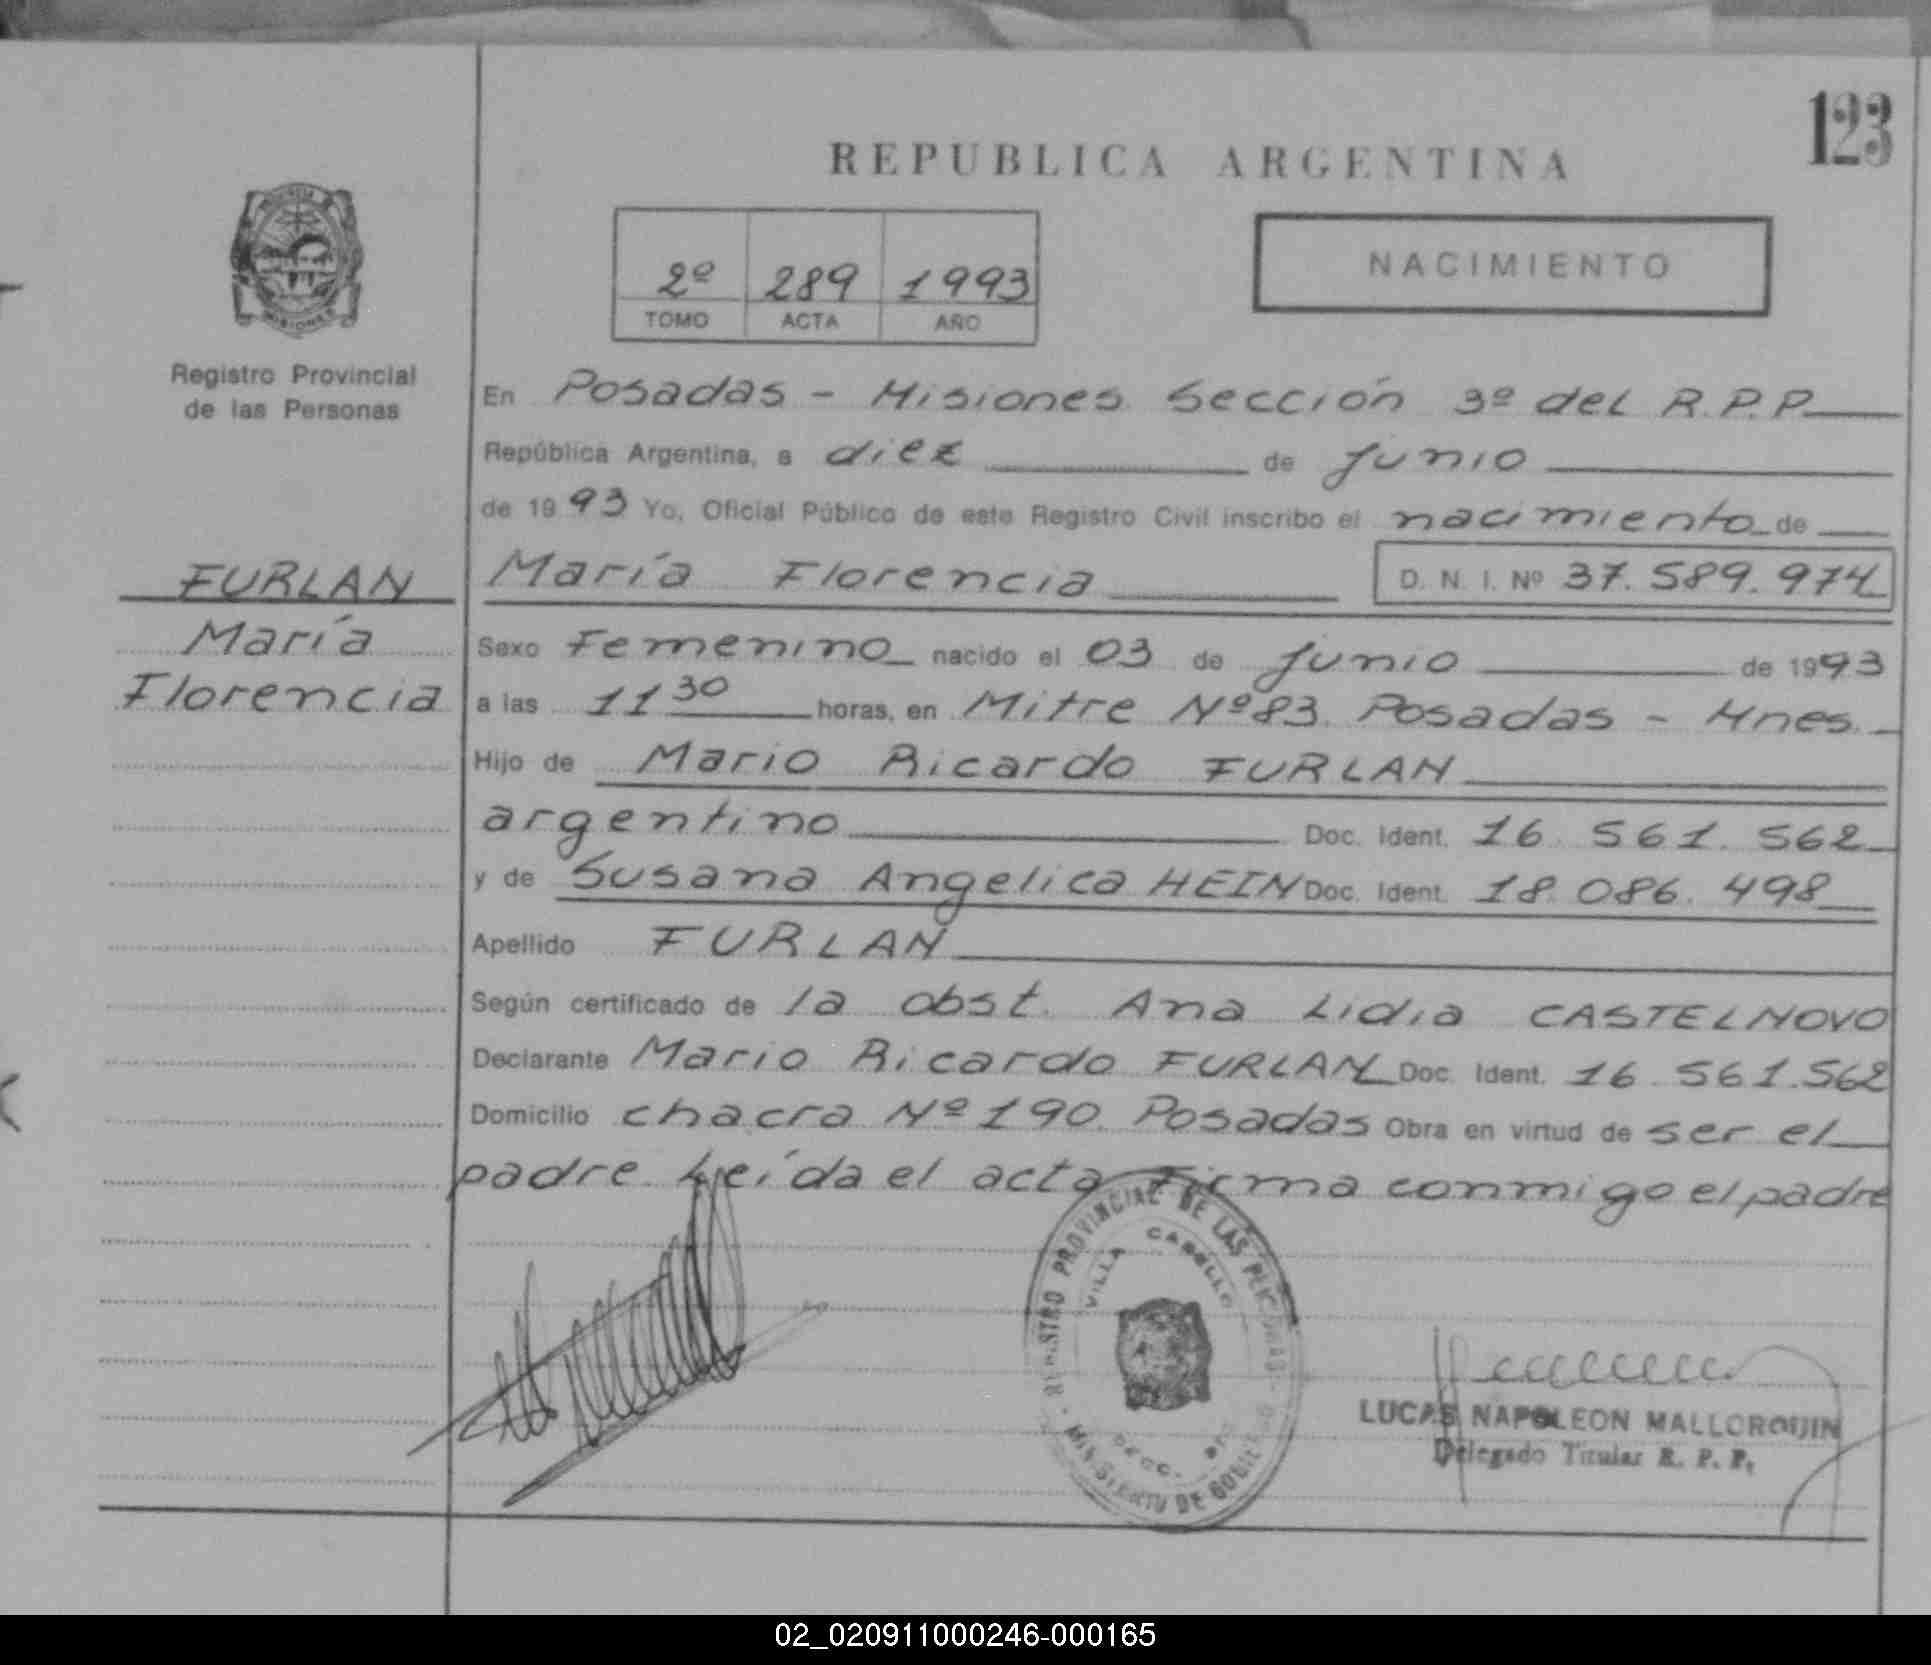 123
REPUBLICA ARGENTINA
2º 289 1993
TOMO ACTA AÑO
NACIMIENTO
Registro Provincial
de las Personas
En Posadas - Misiones. Sección 3º del R.P.P.
República Argentina, a diez de Junio
de 1993 Yo, Oficial Público de este Registro Civil inscribo el nacimiento de
FURLAN
María
Florencia
María Florencia D. N. I. Nº 37.589.974
Sexo Femenino nacido el 03 de Junio de 1993
a las 11 30 horas, en Mitre Nº 83. Posadas - Mnes.
Hijo de Mario Ricardo FURLAN
argentino Doc. Ident. 16.561.562
y de Susana Angelica HEIN Doc. Ident. 18.086.498
Apellido FURLAN
Según certificado de la obst. Ana Lidia CASTELNOVO
Declarante Mario Ricardo FURLAN Doc. Ident. 16.561.562
Domicilio chacra Nº 190. Posadas Obra en virtud de ser el
padre. Leída el acta firma conmigo el padre
REGISTRO PROVINCIAL DE LAS PERSONAS
VILLA CABELLO
MINISTERIO DE GOBIERNO
LUCAS NAPOLEON MALLORQUIN
Delegado Titular R. P. P.
02_020911000246-000165